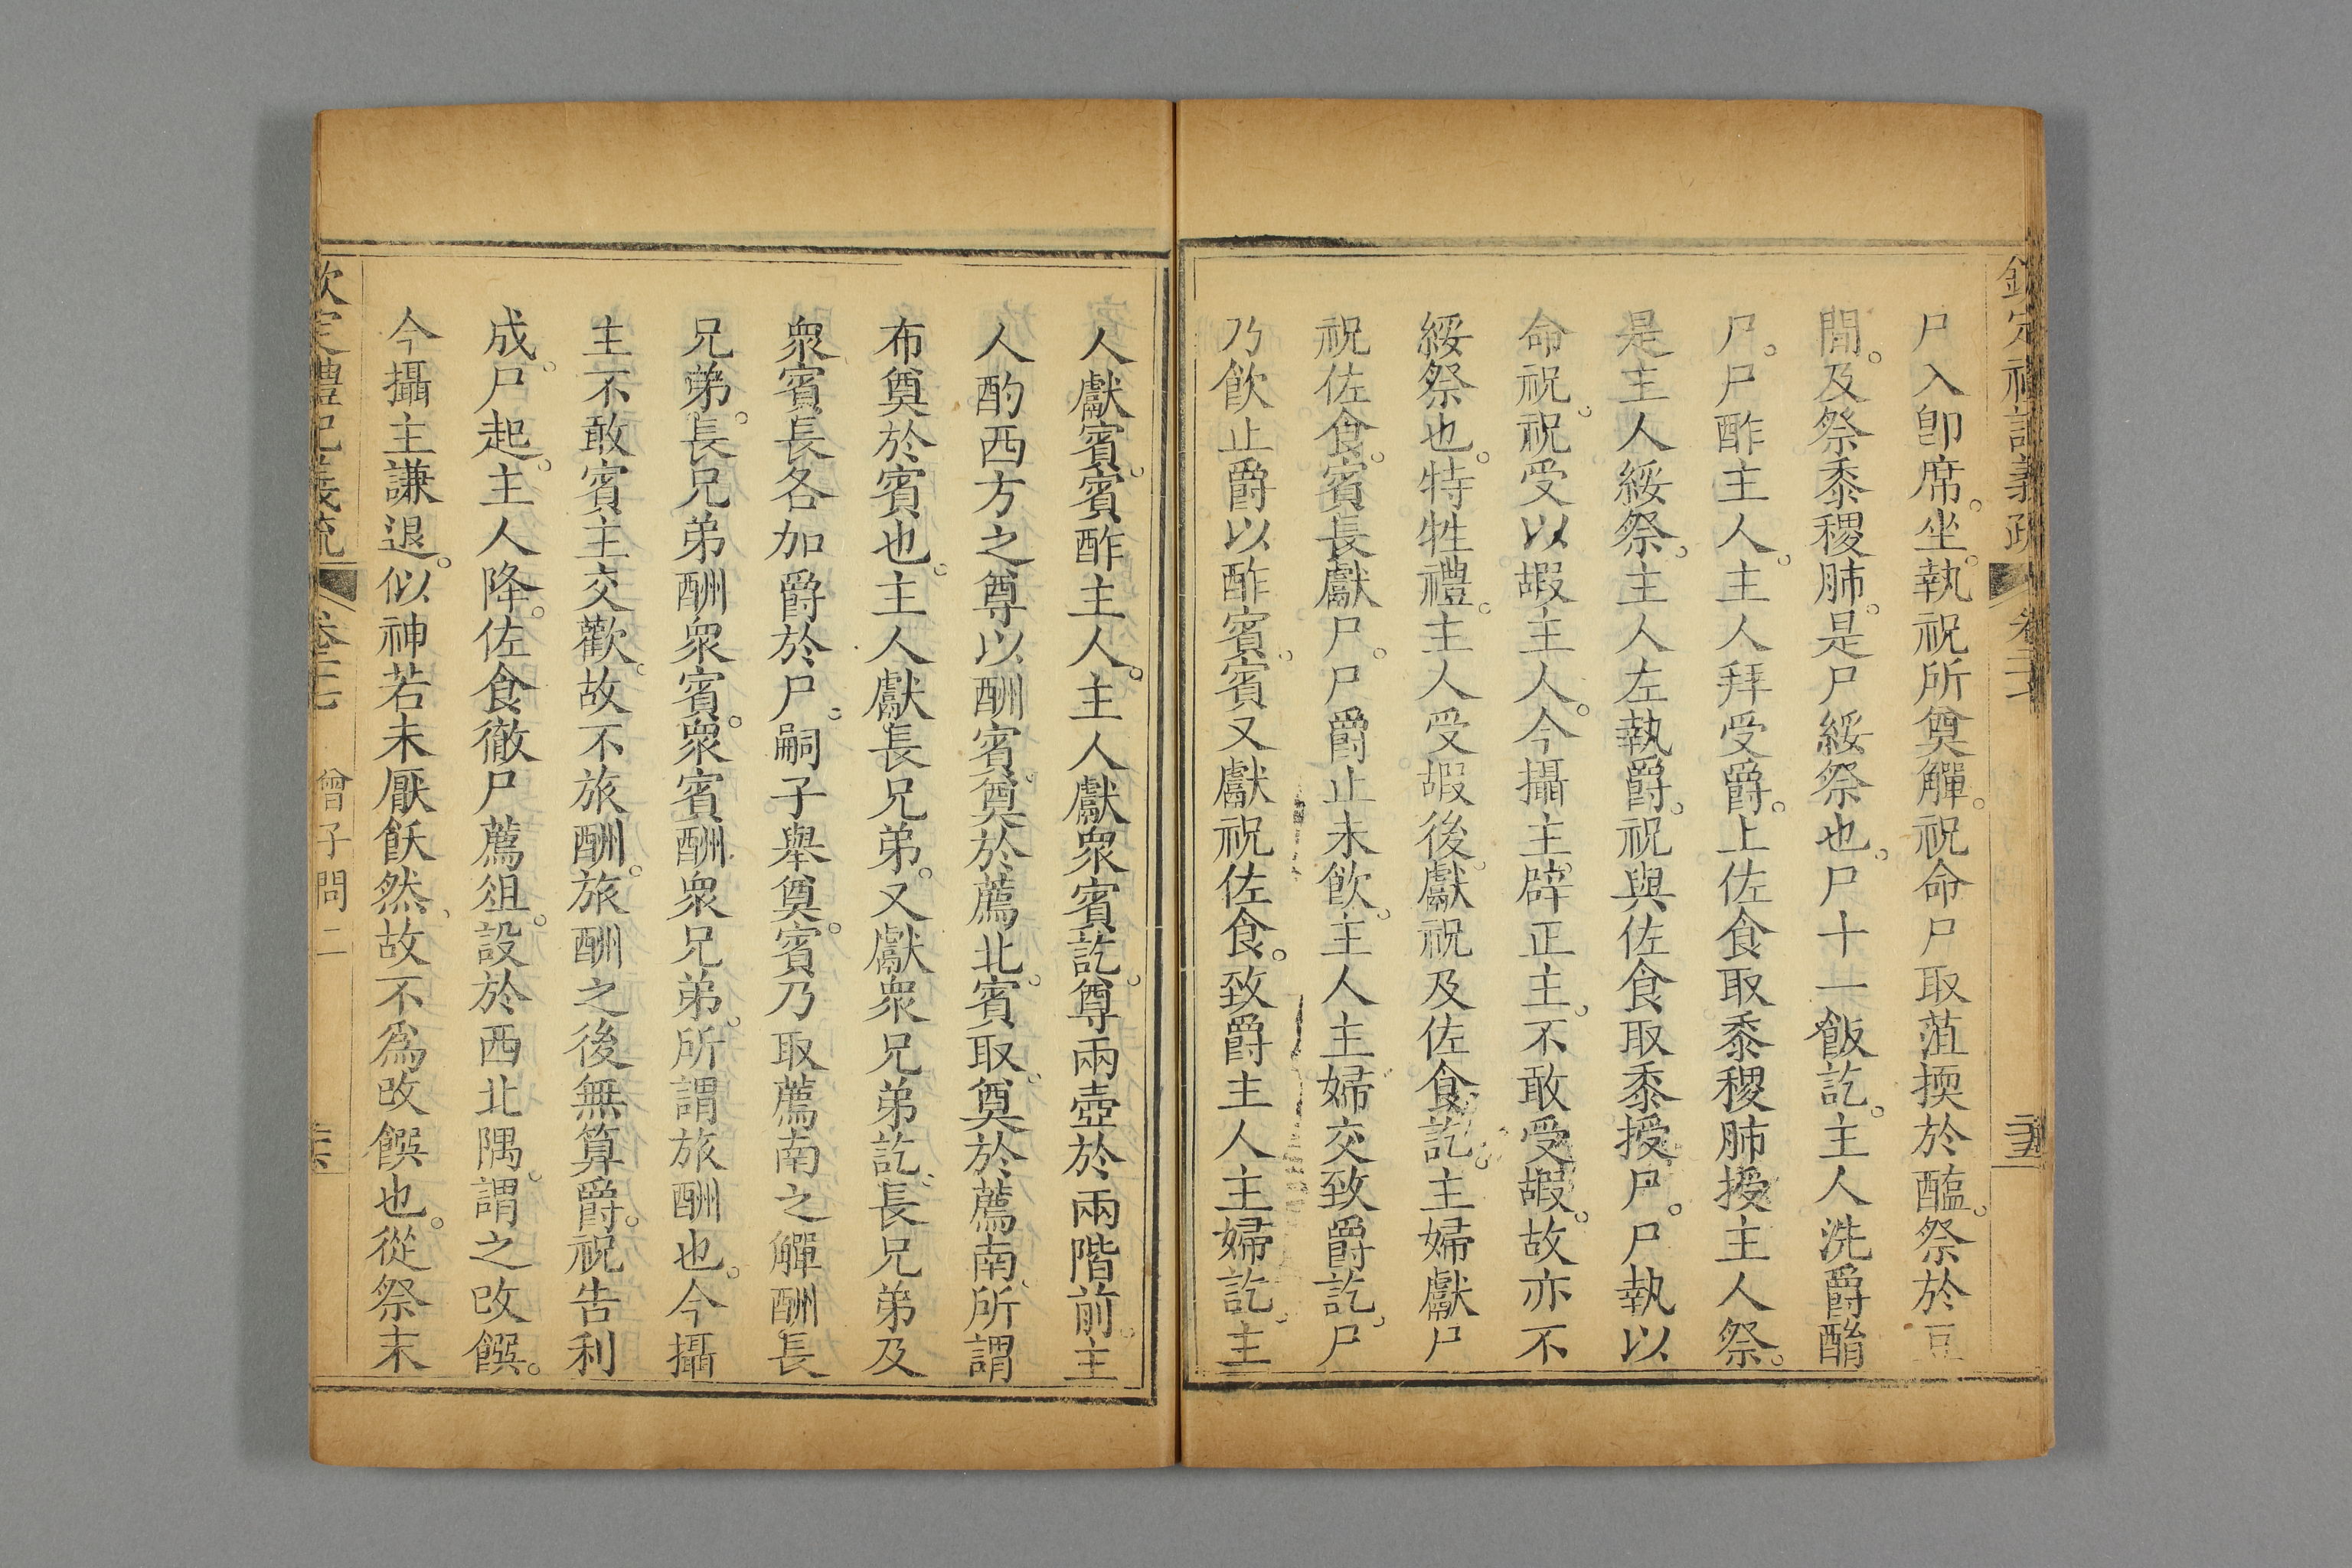 尸入卽席。坐。執祝所奠觶。祝命尸取菹㨎於醢。祭於豆
閒。及祭黍稷肺。是尸綏祭也。尸十一飯訖。主人洗爵酳
尸。尸酢主人。主人拜受爵。上佐食取黍稷肺授主人祭。
是主人綏祭。主人左執爵。祝與佐食取黍授尸。尸執以
命祝。祝受以嘏主人。今攝主辟正主。不敢受嘏。故亦不
綏祭也。特牲禮。主人受嘏後。獻祝及佐食訖。主婦獻尸
祝佐食。賓長獻尸。尸爵止未飮。主人主婦交致爵訖。尸
乃飮止爵以酢賓。賓又獻祝佐食。致爵主人主婦訖。主
人獻賓。賓酢主人。主人獻衆賓訖。尊兩壺於兩階前。主
人酌西方之尊以酬賓。奠於薦北。賓取奠於薦南。所謂
布奠於賓也。主人獻長兄弟。又獻衆兄弟訖。長兄弟及
衆賓長各加爵於尸。嗣子舉奠。賓乃取薦南之觶酬長
兄弟。長兄弟酬衆賓。衆賓酬衆兄弟。所謂旅酬也。今攝
主不敢賓主交歡。故不旅酬。旅酬之後無算爵。祝告利
成。尸起。主人降。佐食徹尸薦俎。設於西北隅。謂之改饌。
今攝主謙退。似神若未厭飫然。故不爲改饌也。從祭末
曾子問二